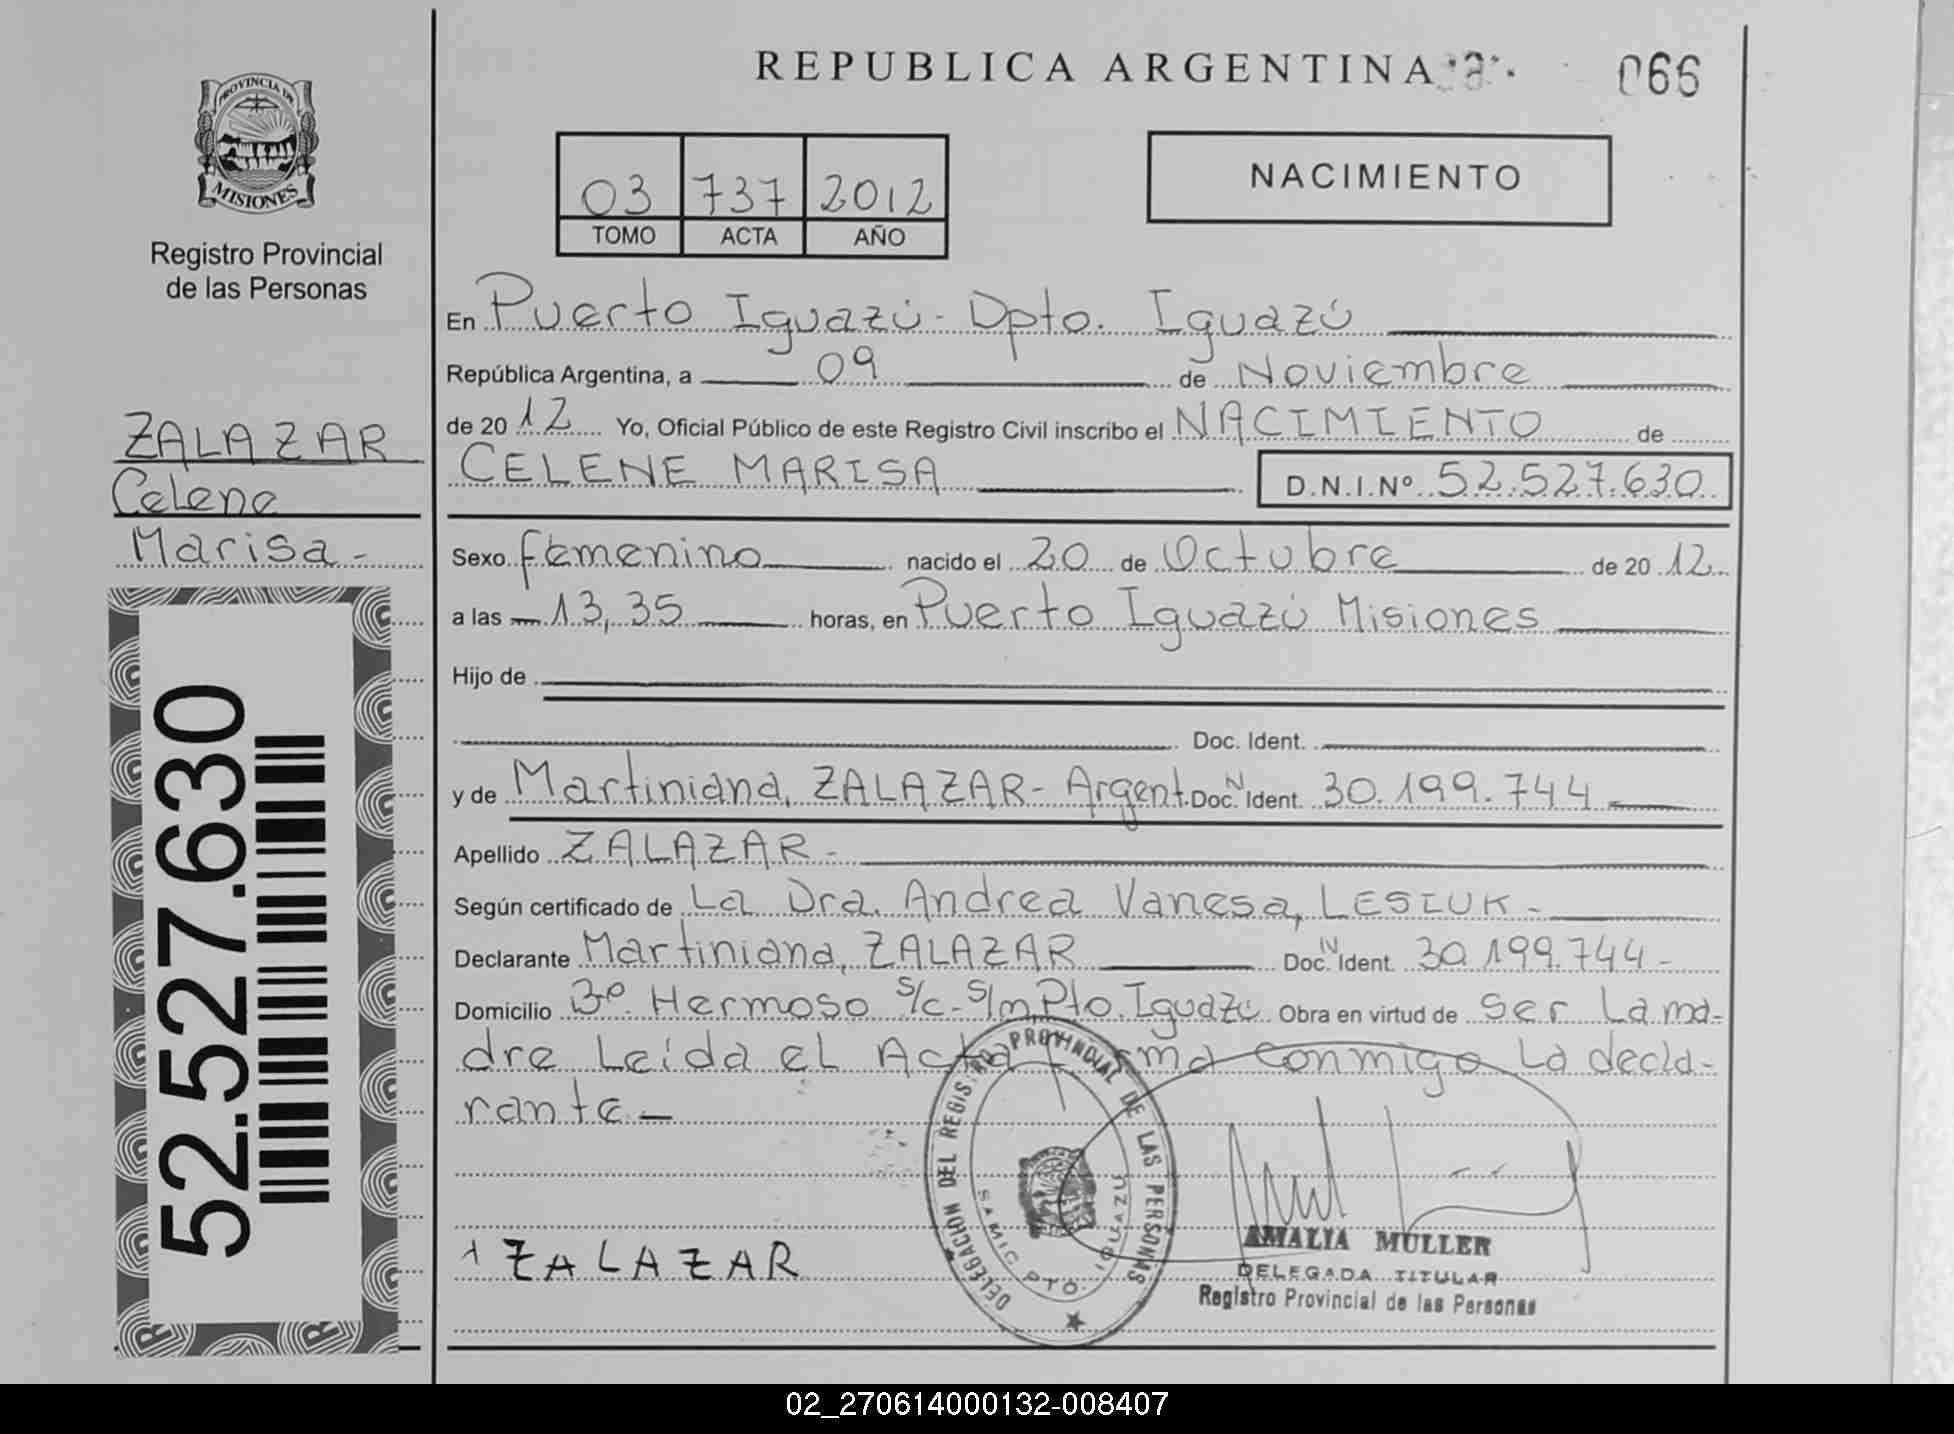 REPUBLICA ARGENTINA
066
PROVINCIA DE
MISIONES
Registro Provincial
de las Personas
03 737 2012
TOMO ACTA AÑO
NACIMIENTO
En Puerto Iguazú - Dpto. Iguazú
República Argentina, a 09 de Noviembre
de 2012 Yo, Oficial Público de este Registro Civil inscribo el NACIMIENTO de
CELENE MARISA D.N.I.Nº 52.527.630
ZALAZAR
Celene
Marisa -
Sexo femenino nacido el 20 de Octubre de 2012
a las 13,35 horas, en Puerto Iguazú Misiones
Hijo de
Doc. Ident.
y de Martiniana, ZALAZAR - Argent. Doc. N Ident. 30.199.744
Apellido ZALAZAR -
Según certificado de La Dra. Andrea Vanesa, LESIUK -
Declarante Martiniana, ZALAZAR Doc. N Ident. 30.199.744 -
Domicilio Bº Hermoso S/c - S/m Pto. Iguazú Obra en virtud de ser La ma-
dre Leída el Acta conmigo La decla-
rante -
52.527.630
ZALAZAR
DELEGACION DEL REGISTRO PROVINCIAL DE LAS PERSONAS
SAMIC PTO. IGUAZU
AMALIA MULLER
DELEGADA TITULAR
Registro Provincial de las Personas
02_270614000132-008407